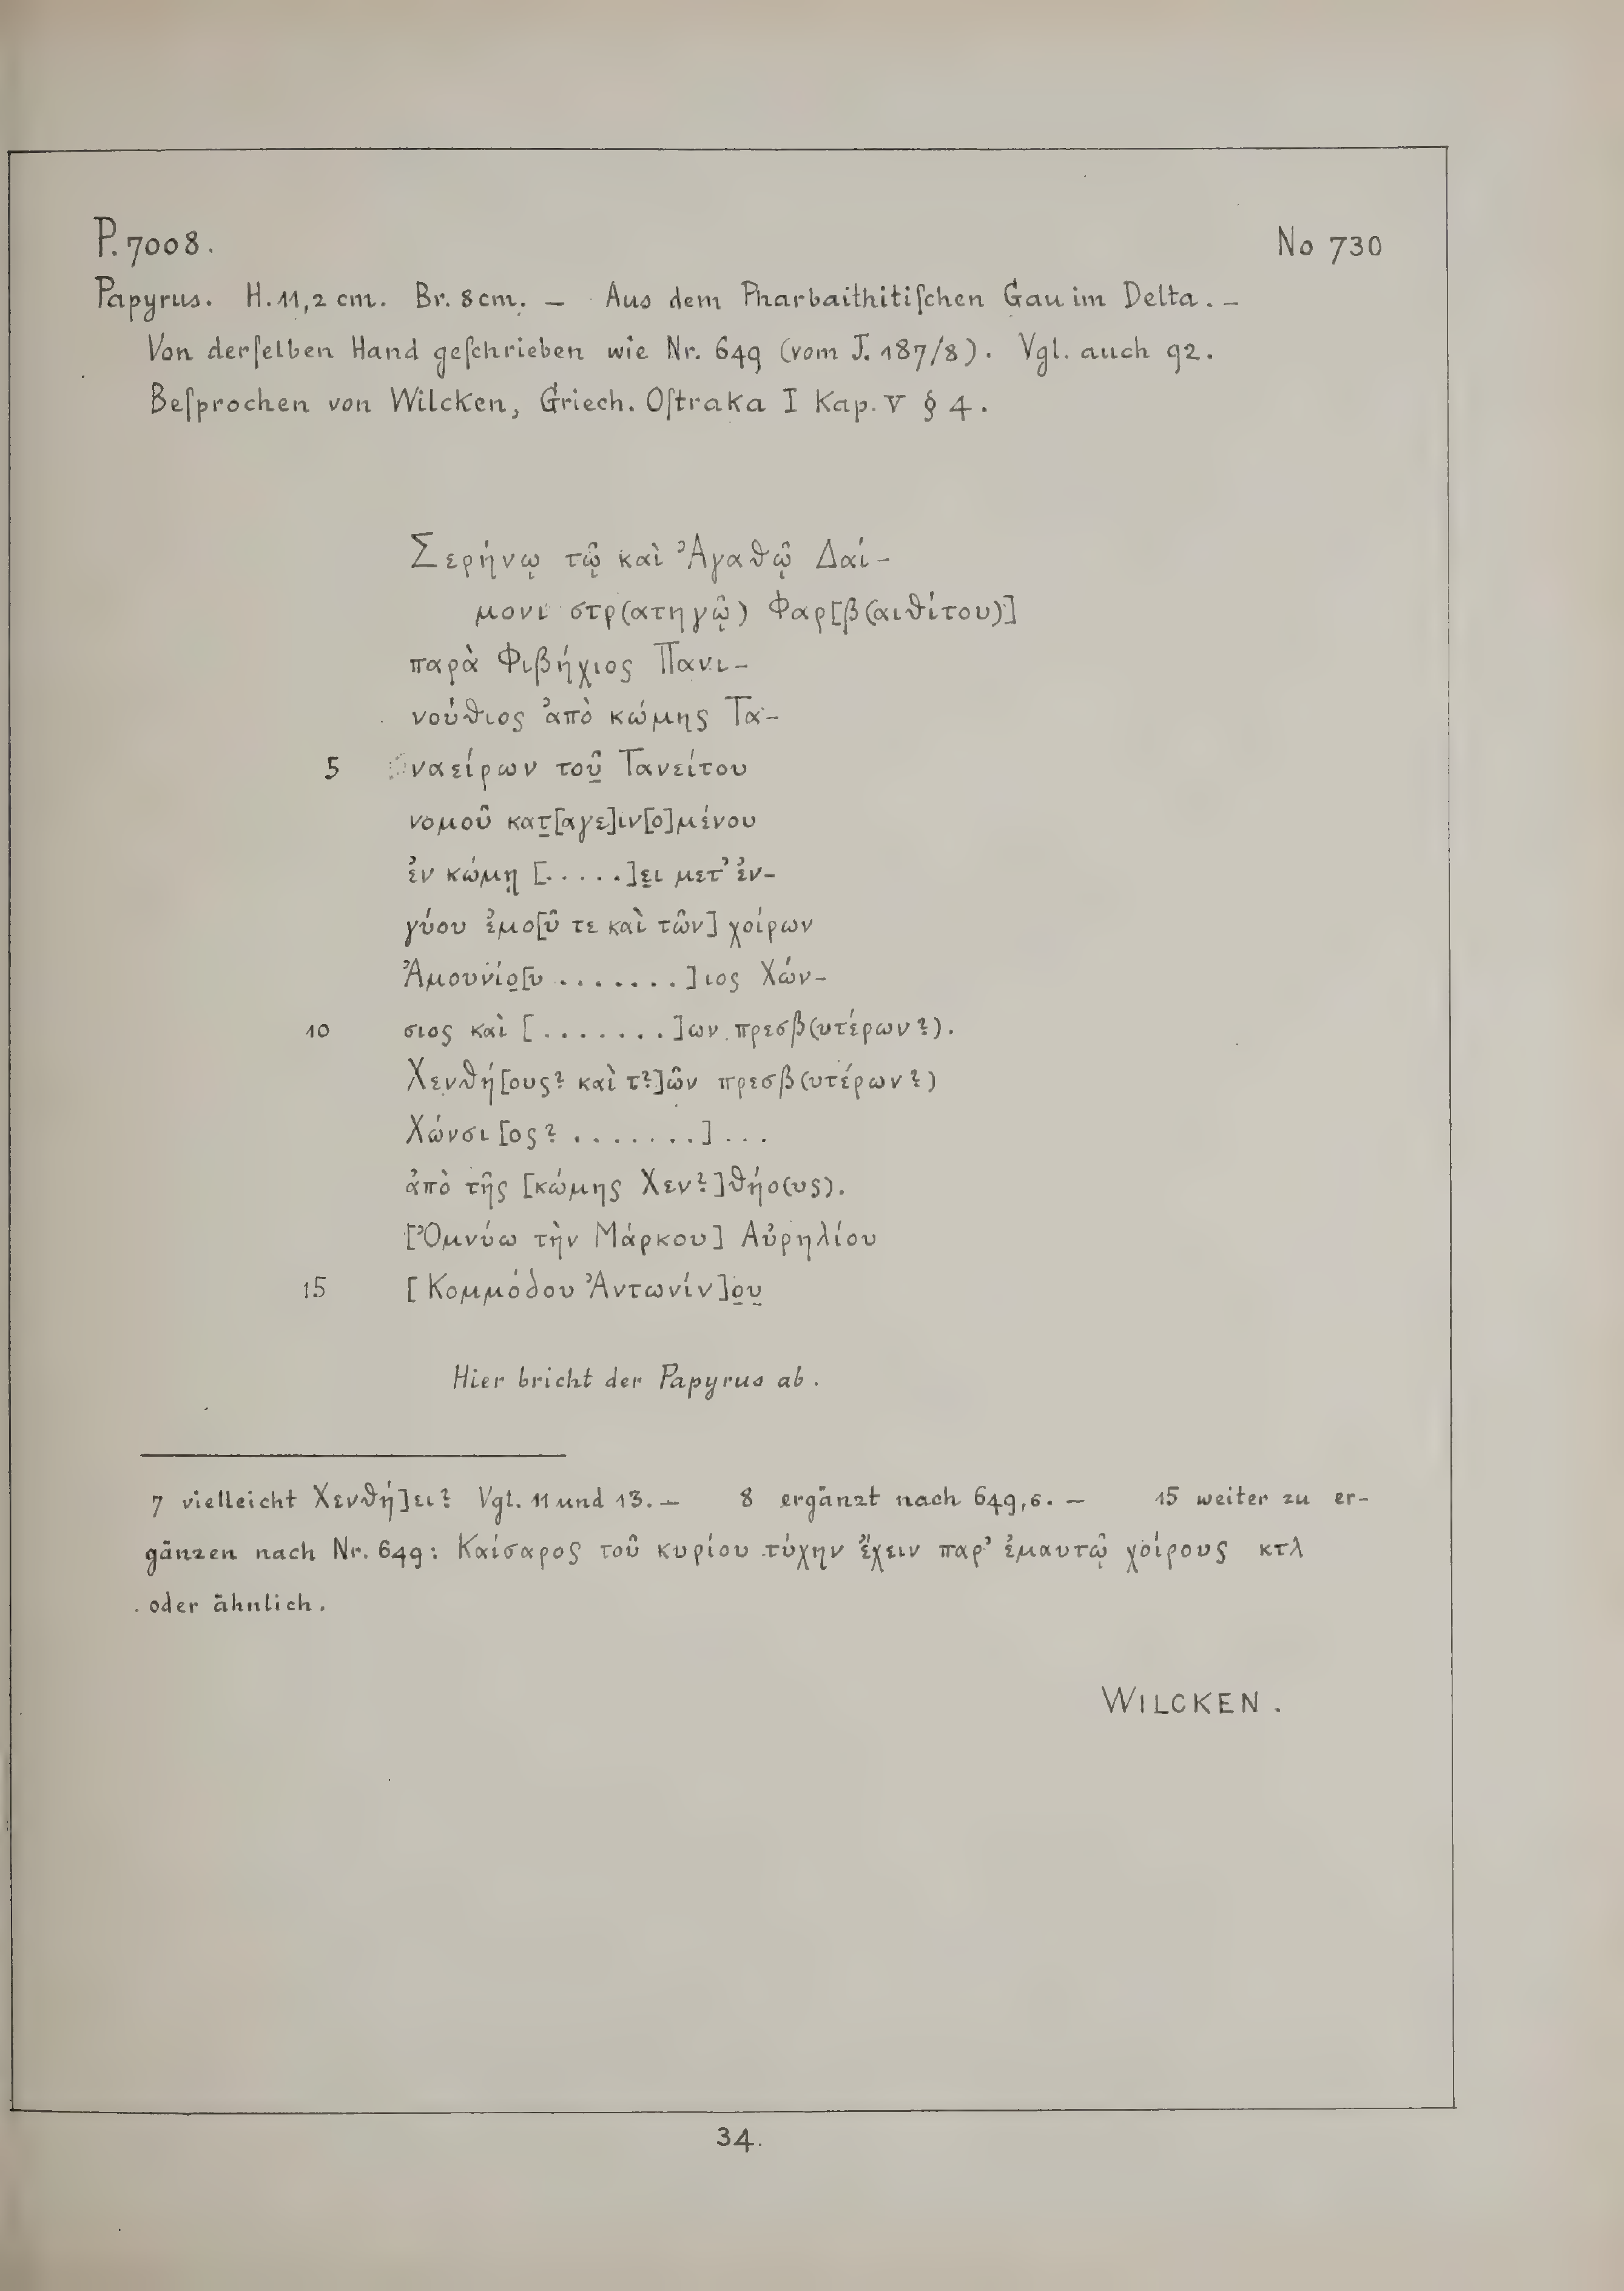 P. 7008.
No 730
Papyrus. H. 11,2 cm. Br. 8 cm. — Aus dem Pharbaithitiſchen Gau im Delta. —
Von derſelben Hand geſchrieben wie Nr. 649 (vom J. 187/8). Vgl. auch 92.
Beſprochen von Wilcken, Griech. Oſtraka I Kap. V § 4.
Σερήνῳ τῷ καὶ Ἀγαθῷ Δαί-
μονι στρ(ατηγῷ) Φαρ[β(αιθίτου)]
παρὰ Φιβήχιος Πανι-
νούθιος ἀπὸ κώμης Τα-
5 ναείρων τοῦ̣ Τανείτου
νομοῦ κατ̣[αγε]ιν[ο]μένου
ἐν κώμῃ [.....]ε̣ι μετ’ ἐν-
γύου ἐμο[ῦ τε καὶ τῶν] χοίρων
Ἀμουνίο̣[υ .......]ιος Χών-
10 σιος καὶ [.......]ων πρεσβ(υτέρων?).
Χενθή[ους? καὶ τ?]ῶν πρεσβ(υτέρων?)
Χώνσι[ος? .......]...
ἀπὸ τῆς [κώμης Χεν?]θήο(υς).
[Ὀμνύω τὴν Μάρκου] Αὐρηλίου
15 [Κομμόδου Ἀντωνίν]ο̣υ̣
Hier bricht der Papyrus ab.
7 vielleicht Χενθή]ει? Vgl. 11 und 13. — 8 ergänzt nach 649,6. — 15 weiter zu er-
gänzen nach Nr. 649: Καίσαρος τοῦ κυρίου τύχην ἔχειν παρ’ ἐμαυτῷ χοίρους κτλ
oder ähnlich.
WILCKEN.
34.